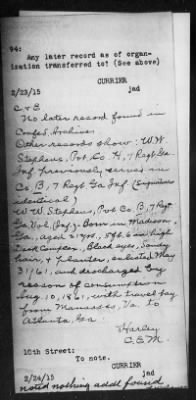 94:
Any later record as of organ-
ization transferred to? (See above)
CURRIER
2/23/15 jad
C & B
No later record found in
Confed. Archives.
Other records show: W.W.
Stephens, Pvt Co. H, 7 Regt Ga.
Inf previously served in
Co. B, 7 Regt Ga. Inf (
identical)
W. W. Stephens, Pvt Co B, 7 Regt
Ga. Vol. Inf. Born in Madison,
Ga., aged yrs., 5 ft. 6 and high
Dark Complex, Black eyes, Sandy
hair, & Planter, enlisted May
31/61, and discharged by
reason of consumption
Aug. 10, 1861, with travel pay
from Manassas, Va. to
Atlanta, Ga.
Harley
C.E.M.
10th Street:
To note.
CURRIER
2/24/15 jad
noted nothing addl found